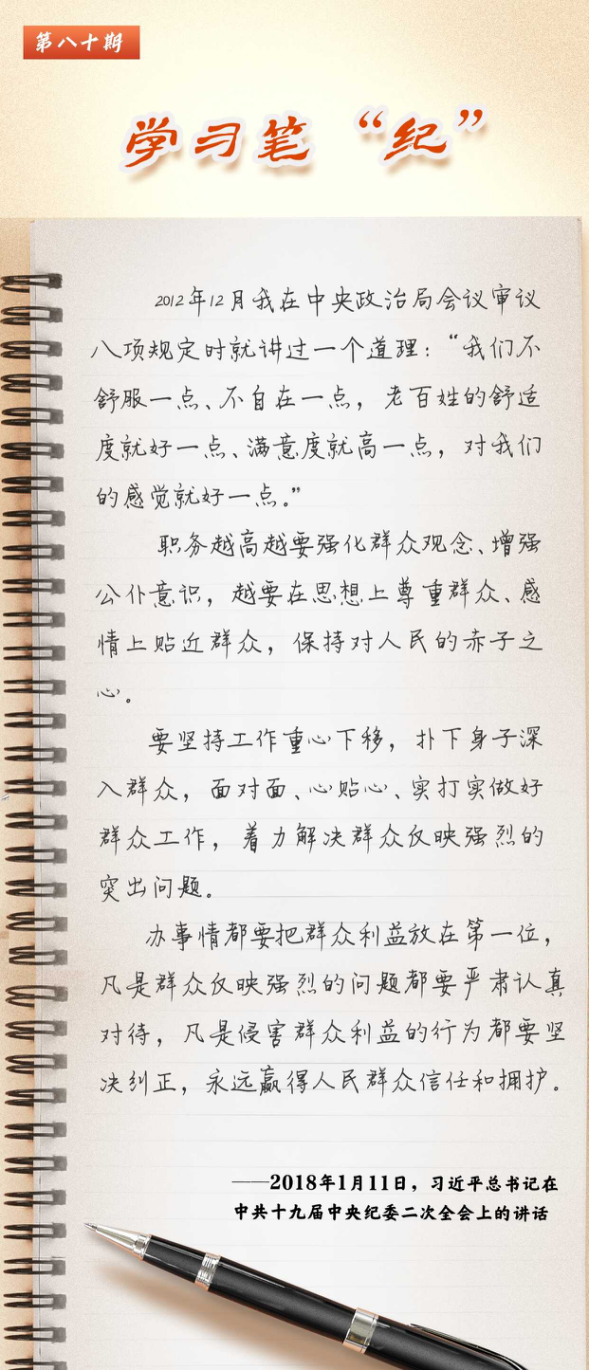 第八十期
学习笔“纪”
2012年12月我在中央政治局会议审议
八项规定时就讲过一个道理：“我们不
舒服一点、不自在一点，老百姓的舒适
度就好一点、满意度就高一点，对我们
的感觉就好一点。”
职务越高越要强化群众观念、增强
公仆意识，越要在思想上尊重群众、感
情上贴近群众，保持对人民的赤子之
心。
要坚持工作重心下移，扑下身子深
入群众，面对面、心贴心、实打实做好
群众工作，着力解决群众反映强烈的
突出问题。
办事情都要把群众利益放在第一位，
凡是群众反映强烈的问题都要严肃认真
对待，凡是侵害群众利益的行为都要坚
决纠正，永远赢得人民群众信任和拥护。
——2018年1月11日，习近平总书记在
中共十九届中央纪委二次全会上的讲话